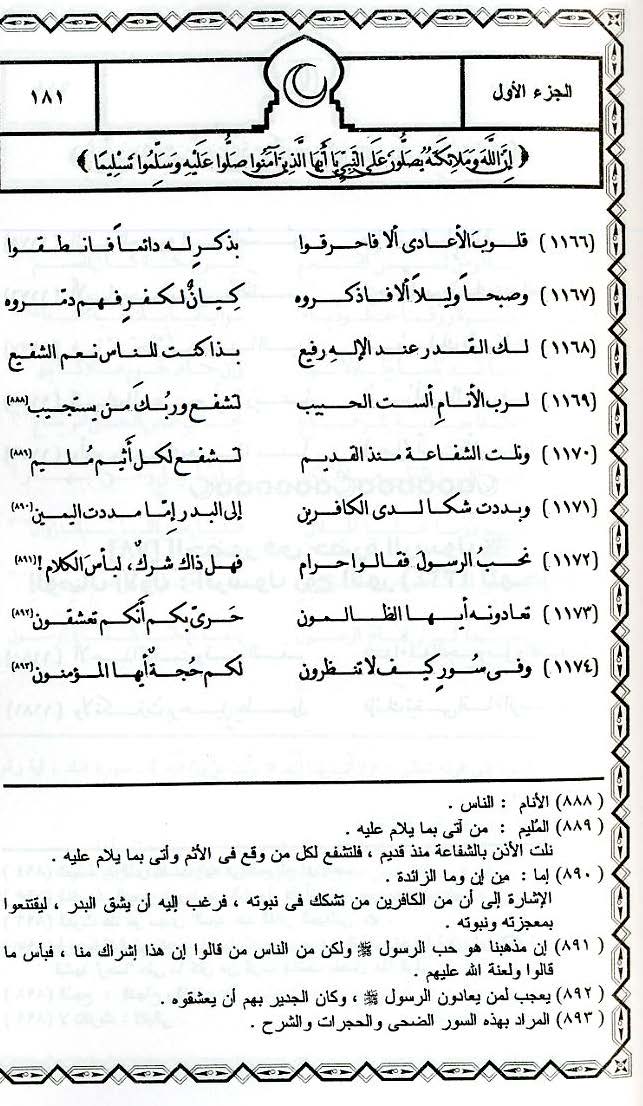 الجزء الأول
١٨١
﴿ إِنَّ اللَّهَ وَمَلَائِكَتَهُ يُصَلُّونَ عَلَى النَّبِيِّ يَا أَيُّهَا الَّذِينَ آمَنُوا صَلُّوا عَلَيْهِ وَسَلِّمُوا تَسْلِيمًا ﴾
(١١٦٦) قلوبَ الأعادى ألا فاحرقوا بذكرٍ له دائماً فانطقوا
(١١٦٧) وصبحاً وليلاً ألا فاذكروه كيانٌ لكفرٍ فهم دمّروه
(١١٦٨) لك القدر عند الإلهِ رفيع بذا كنت للناس نعم الشفيع
(١١٦٩) لرب الأنامِ ألست الحبيب تشفع وربُكَ من يستجيب (٨٨٨)
(١١٧٠) ونلت الشفاعة منذ القديم تشفع لكل أثيم مُليم (٨٨٩)
(١١٧١) وبددت شكا لدى الكافرين إلى البدر إمّا مددت اليمين (٨٩٠)
(١١٧٢) نحبُ الرسول فقالوا حرام فهل ذاك شركٌ، لبأسَ الكلام! (٨٩١)
(١١٧٣) تعادونه أيها الظالمون حَرىّ بكم أنكم تعشقون (٨٩٢)
(١١٧٤) وفى سُورٍ كيف لا تنظرون لكم حُجةٌ أيها المؤمنون (٨٩٣)
(٨٨٨) الأنام : الناس .
(٨٨٩) المُليم : من آتى بما يلام عليه .
نلت الأذن بالشفاعة منذ قديم ، فلتشفع لكل من وقع فى الأثم وأتى بما يلام عليه .
(٨٩٠) إما : من إن وما الزائدة .
الإشارة إلى أن من الكافرين من تشكك فى نبوته ، فرغب إليه أن يشق البدر ، ليقتنعوا
بمعجزته ونبوته .
(٨٩١) إن مذهبنا هو حب الرسول ﷺ ولكن من الناس من قالوا إن هذا إشراك منا ، فبأس ما
قالوا ولعنة الله عليهم .
(٨٩٢) يعجب لمن يعادون الرسول ﷺ ، وكان الجدير بهم أن يعشقوه .
(٨٩٣) المراد بهذه السور الضحى والحجرات والشرح .